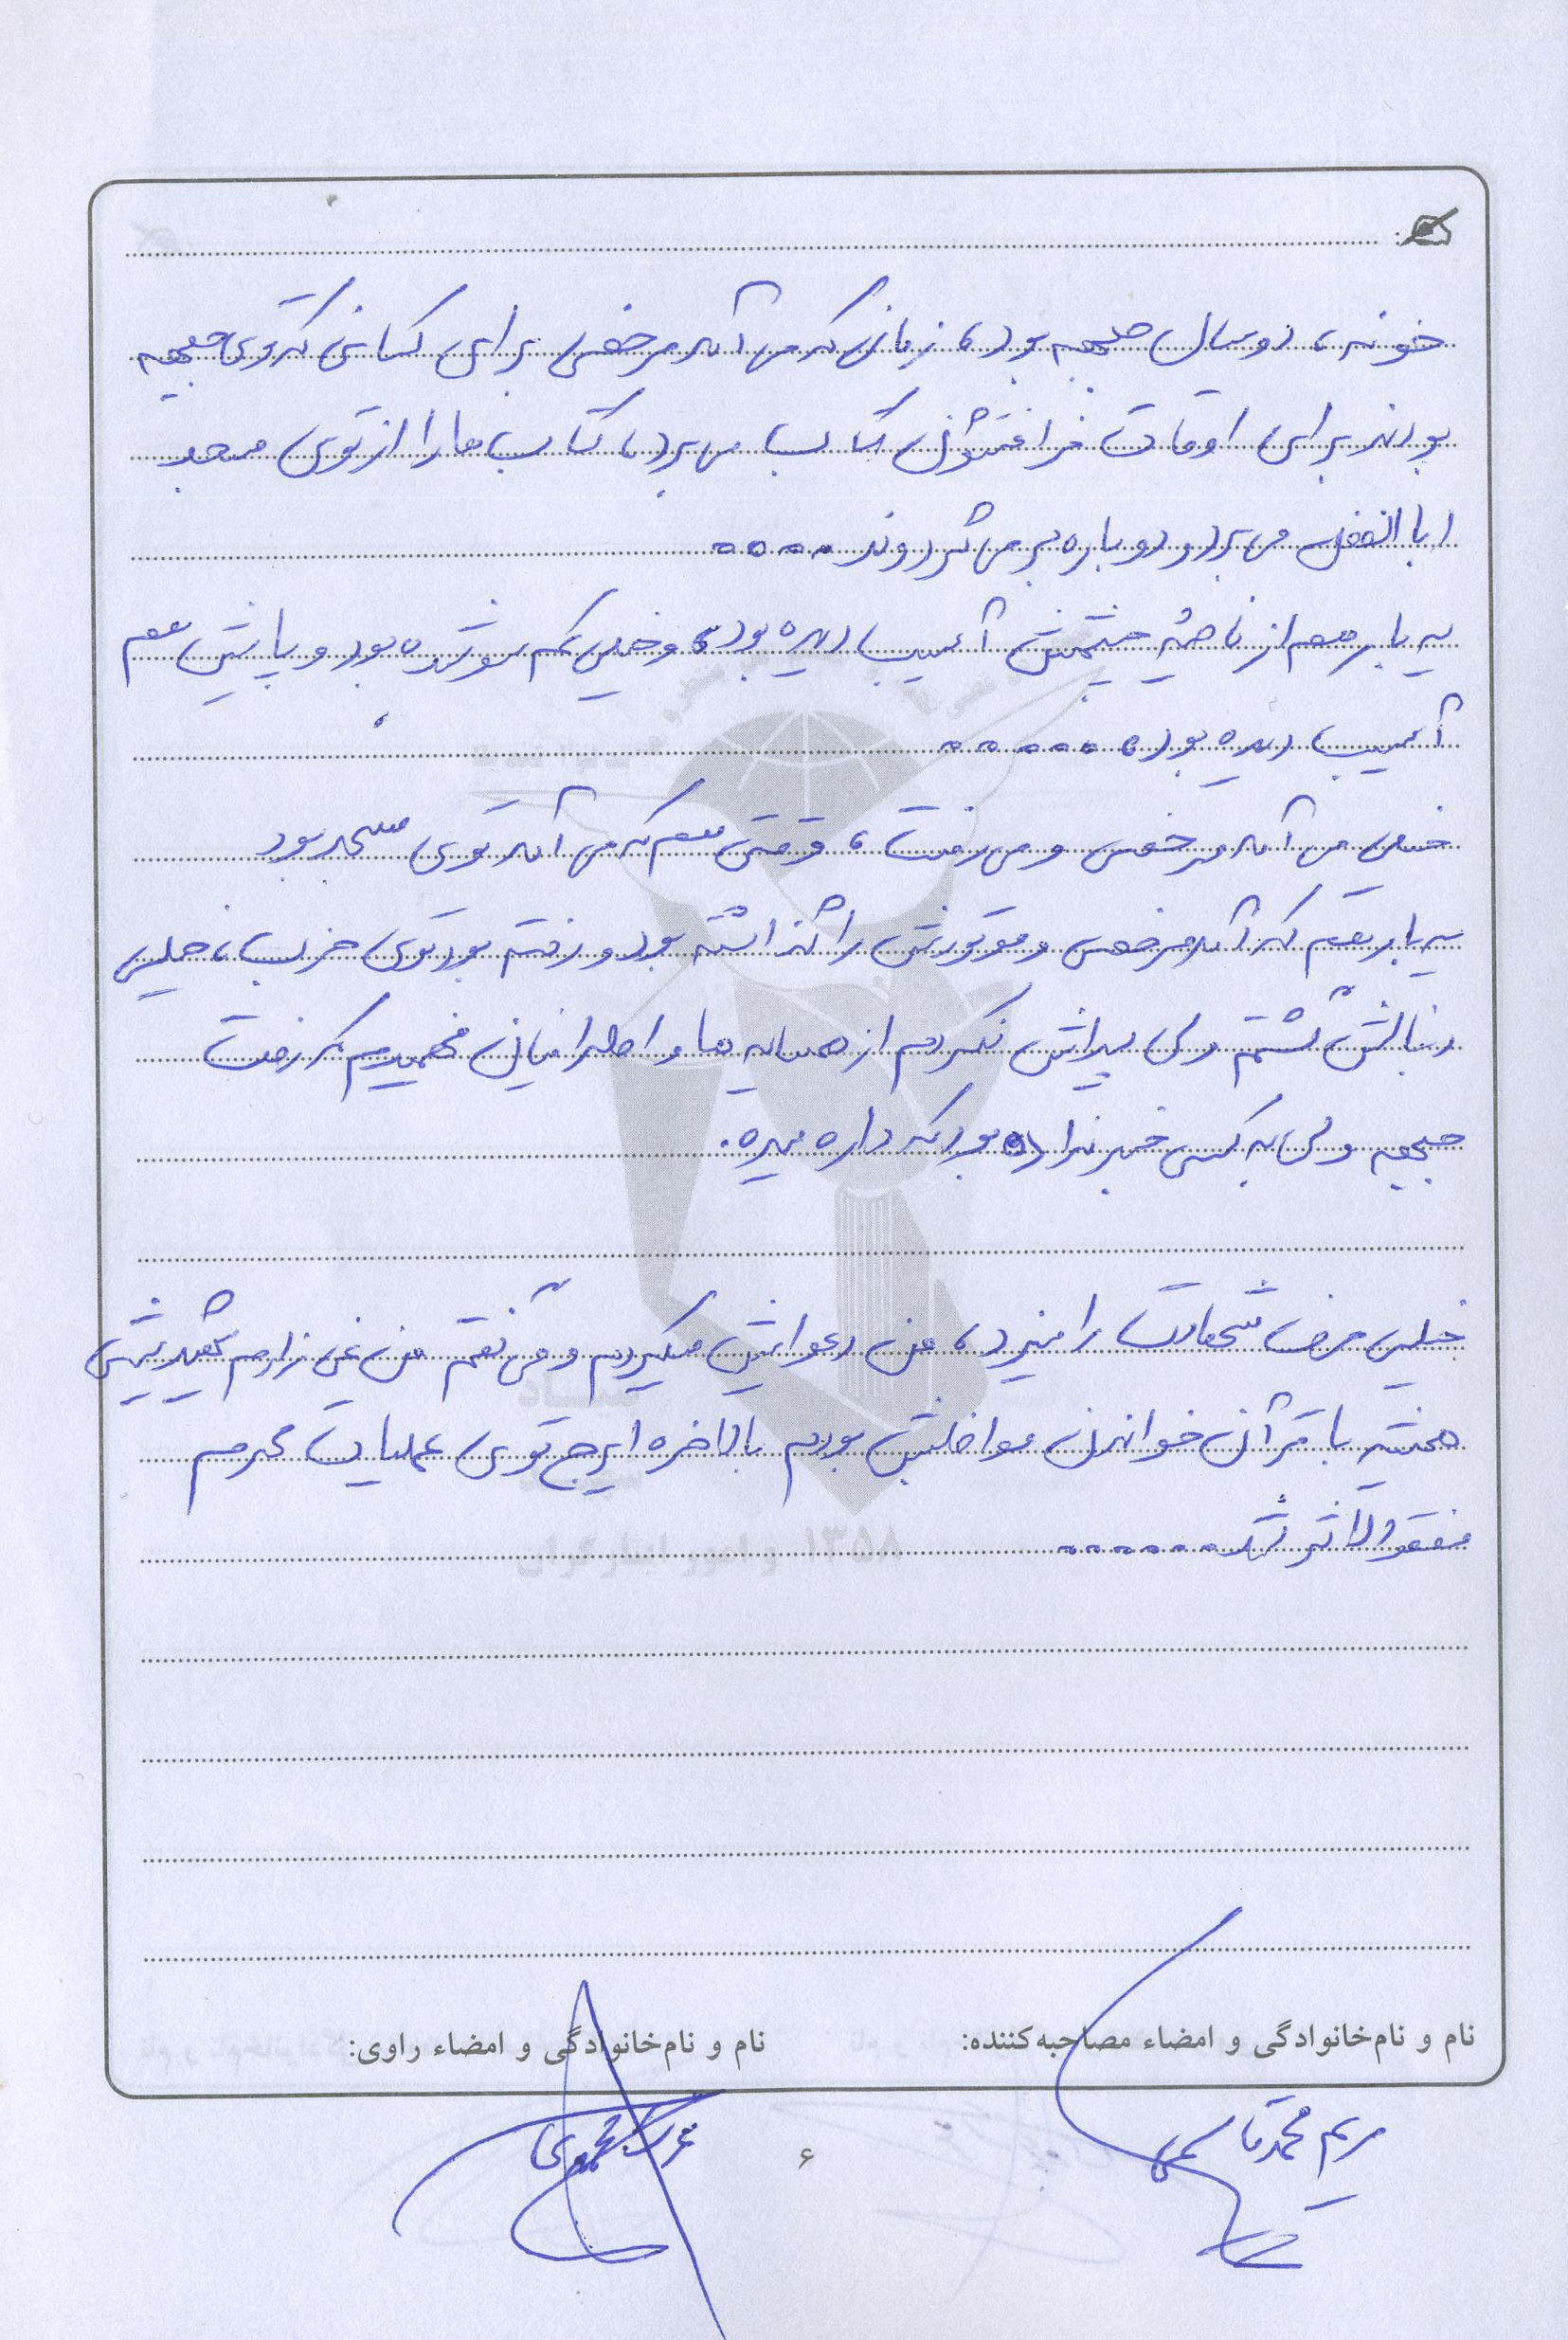 خونه، دو سال جبهه بود، زمانی که می آمد مرخصی برای کسانی که توی جبهه
بودند برای اوقات فراغتشون کتاب می برد، کتاب ها را از توی مسجد
اباالفضل می برد و دوباره بر می گردوند ....
یه بار هم از ناحیه چشمش آسیب دیده بود، و خیلی کم سو شده بود و پایش هم
آسیب دیده بود، .....
خیلی می آمد مرخصی و می رفت، وقتی هم که می آمد توی مسجد بود
یه بار هم که آمد مرخصی و موتورش را گذاشته بود و رفته بود توی حزب، خیلی
دنبالش گشتم ولی پیداش نکردم از همسایه ها و اطرافیان فهمیدم که رفت
جبهه ولی به کسی خبر نداده بود که داره میره.
خیلی حرف شهادت را میزد، من دعوایش میکردم و می گفتم من نمی زارم شهید بشی
همیشه با قرآن خواندن مواظبش بودم بالاخره ایرج توی عملیات محرم
مفقود الاثر شد ......
نام و نام‌خانوادگی و امضاء مصاحبه‌کننده:
نام و نام‌خانوادگی و امضاء راوی:
مریم محمدقاسمی
۶